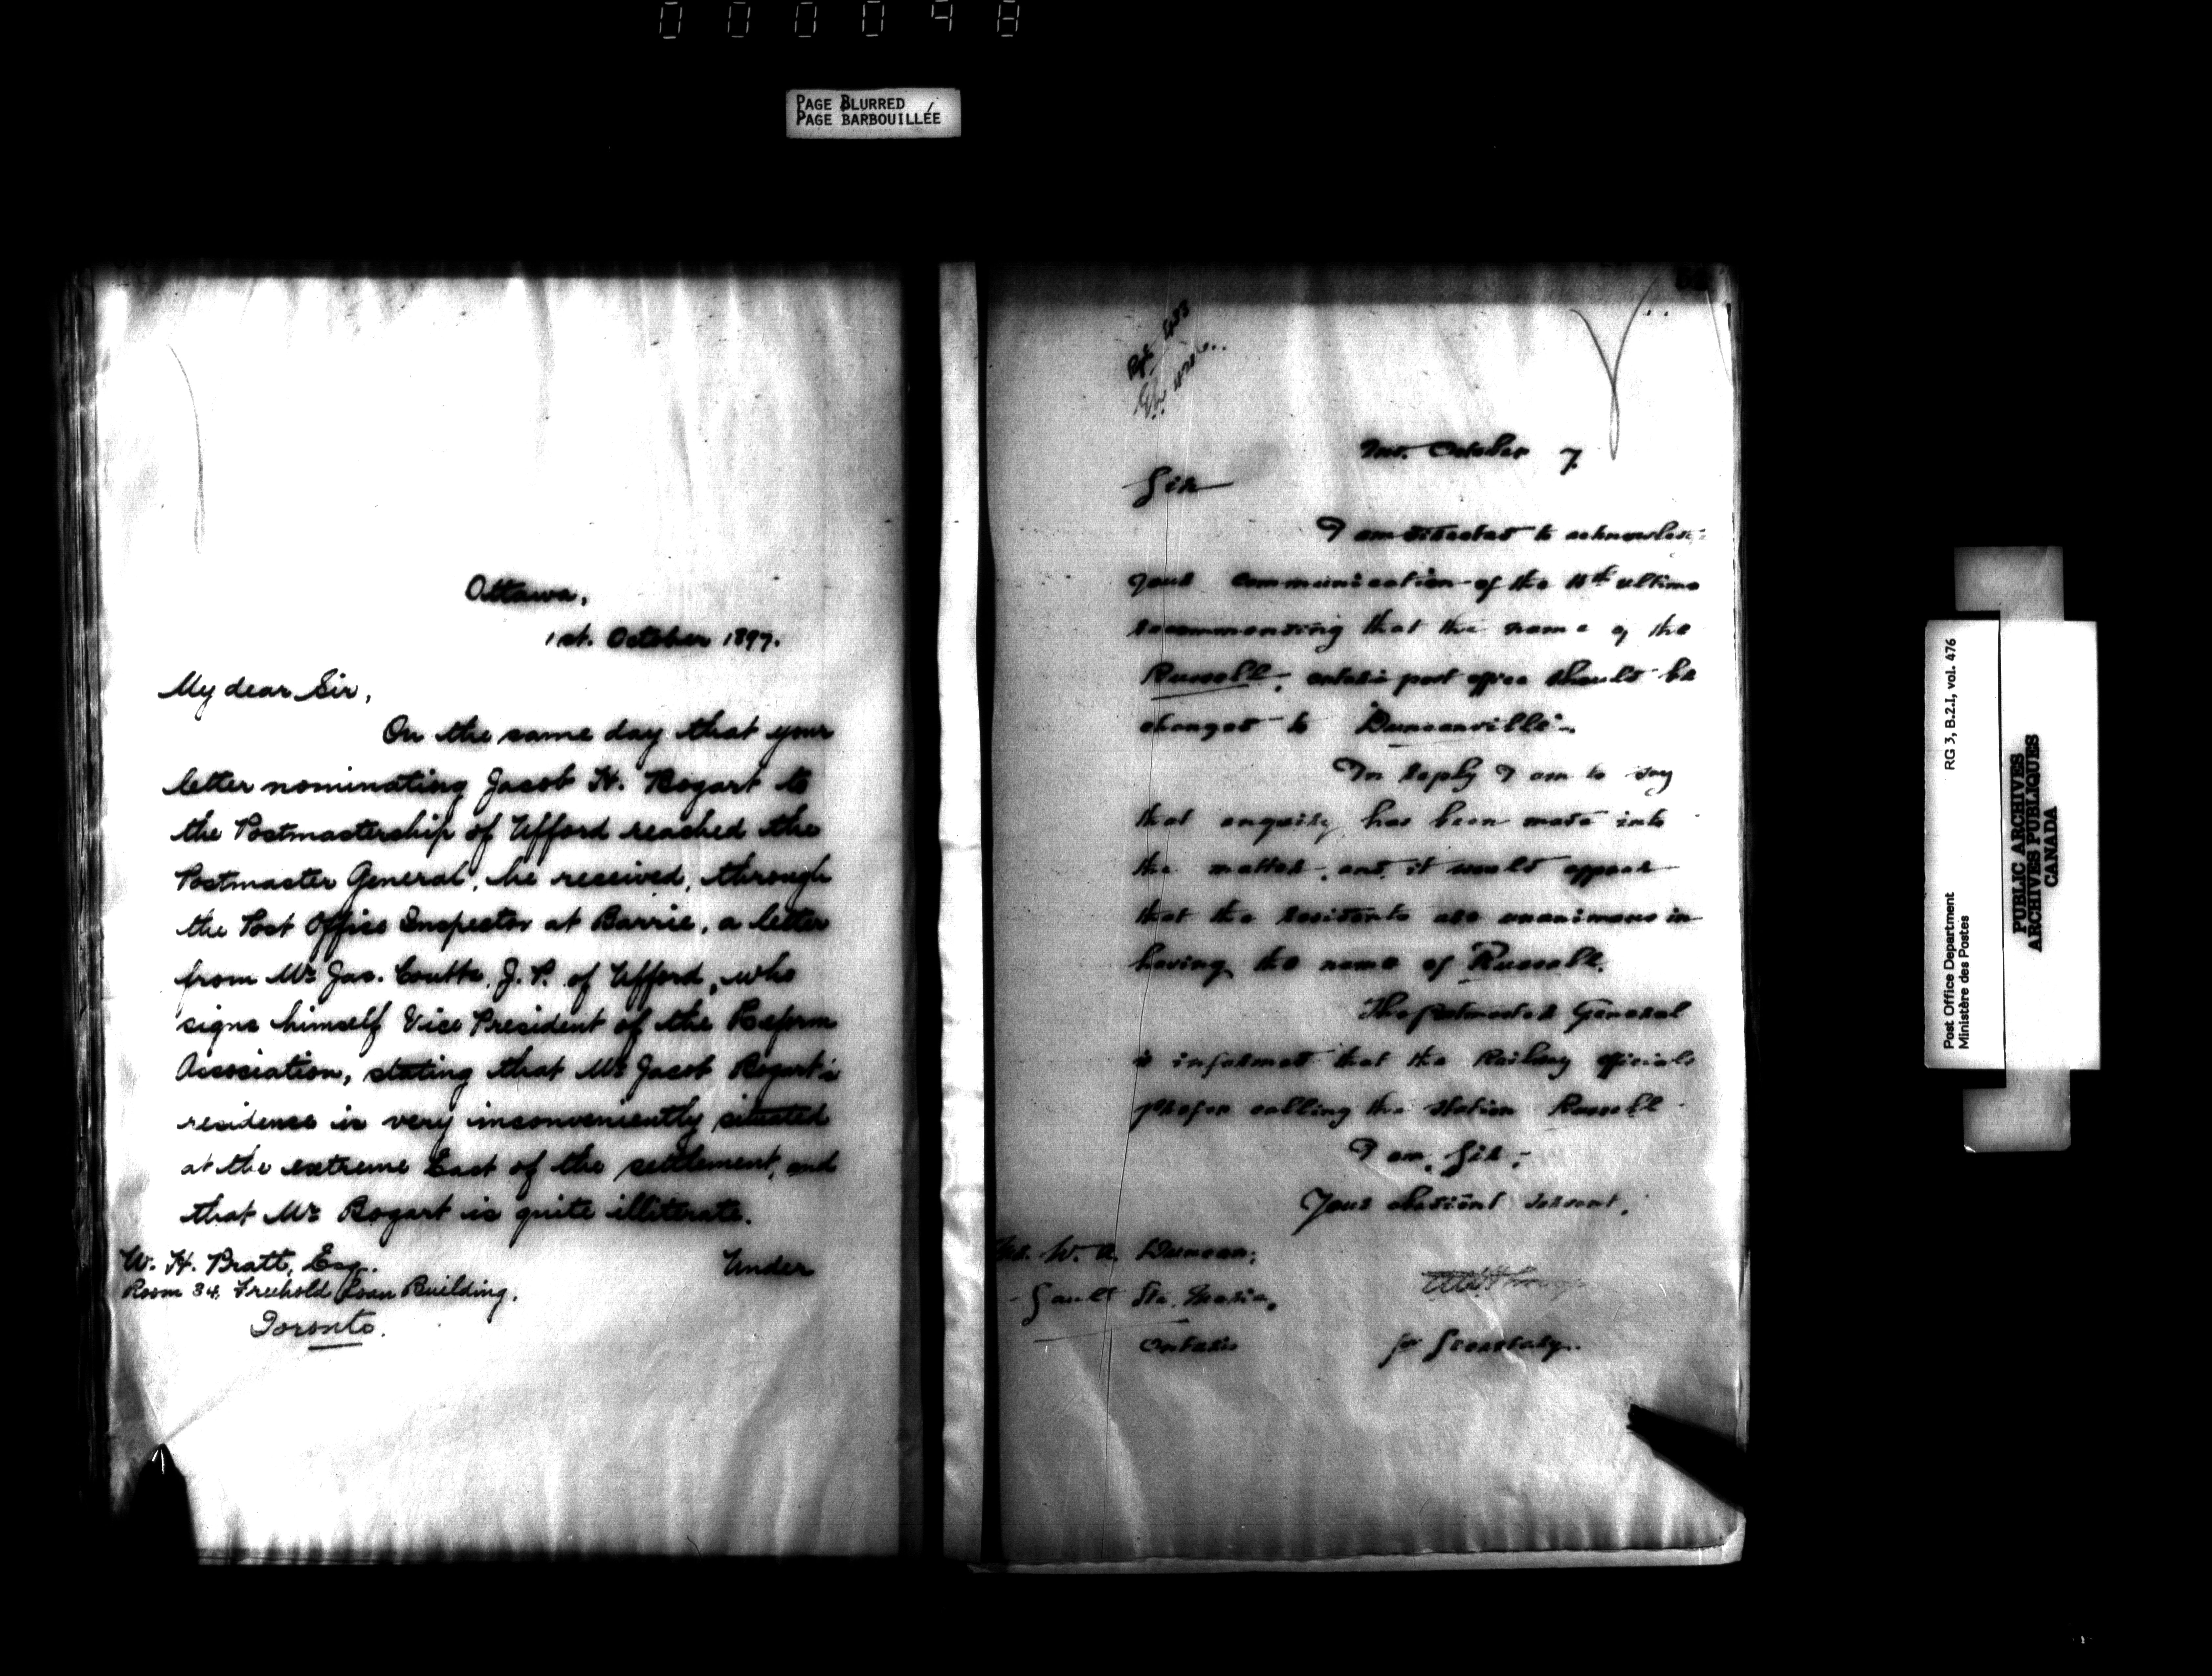 000048
PAGE BLURRED
PAGE BARBOUILLÉE
Ottawa,
1st. October 1897.
My dear Sir,
On the same day that your
letter nominating Jacob H. Bogart to
the Postmastership of Ufford reached the
Postmaster General, he received, through
the Post Office Inspector at Barrie, a letter
from Mr Jas. Coutts, J.P. of Ufford, who
signs himself Vice President of the Reform
Association, stating that Mr Jacob Bogart's
residence is very inconveniently situated
at the extreme East of the settlement, and
that Mr Bogart is quite illiterate.
Under
W. H. Pratt, Esq.
Room 34, Freehold Loan Building,
Toronto.
October 7
Sir
I am directed to acknowledge
your communication of the ultimo
recommending that the name of the
Russell, Ontario post office should be
changed to "Duncanville".
In reply I am to say
that enquiry has been made into
the matter, and, it would appear
that the residents are unanimous in
having the name of Russell.
The Postmaster General
is informed that the Railway officials
prefer calling the station Russell
I am, Sir,
Your obedient servant,
W. Duncan,
Sault Ste. Marie,
Ontario
for Secretary.
Post Office Department
Ministère des Postes
RG 3, B.2.I, vol. 476
PUBLIC ARCHIVES
ARCHIVES PUBLIQUES
CANADA